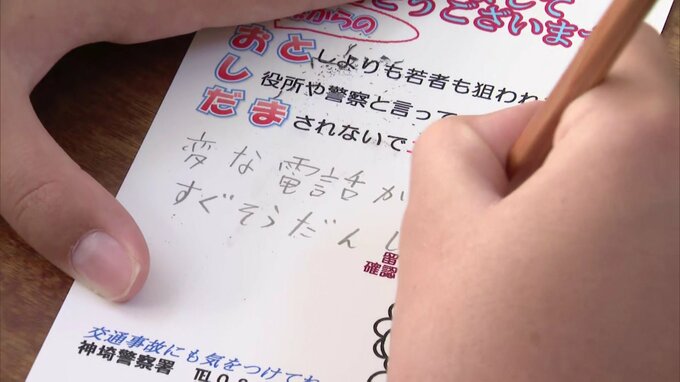 して
からの
とうございます
おとしよりも若者も狙われ
し役所や警察と言って
だまされないで
変な電話が
すぐそうだんし
留
確認
交通事故にも気をつけてね
神埼警察署 ℡0